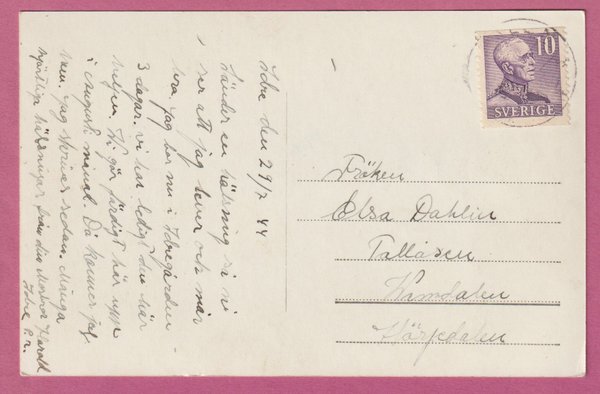 Idre den 29/7 44
Sänder en hälsning så ni
ser att jag lever och mår
bra. Jag har nu i Idregården
3 dagar. vi har ledigt den här
Vi gör färdigt här uppe
i Augusti månad. Då kommer jag
hem. Jag skriver sedan. Många
hjärtliga hälsningar från din Harald
Idre P.r.
10
SVERIGE
Fröken
Elsa Dahlin
Tallåsen
Härjedalen